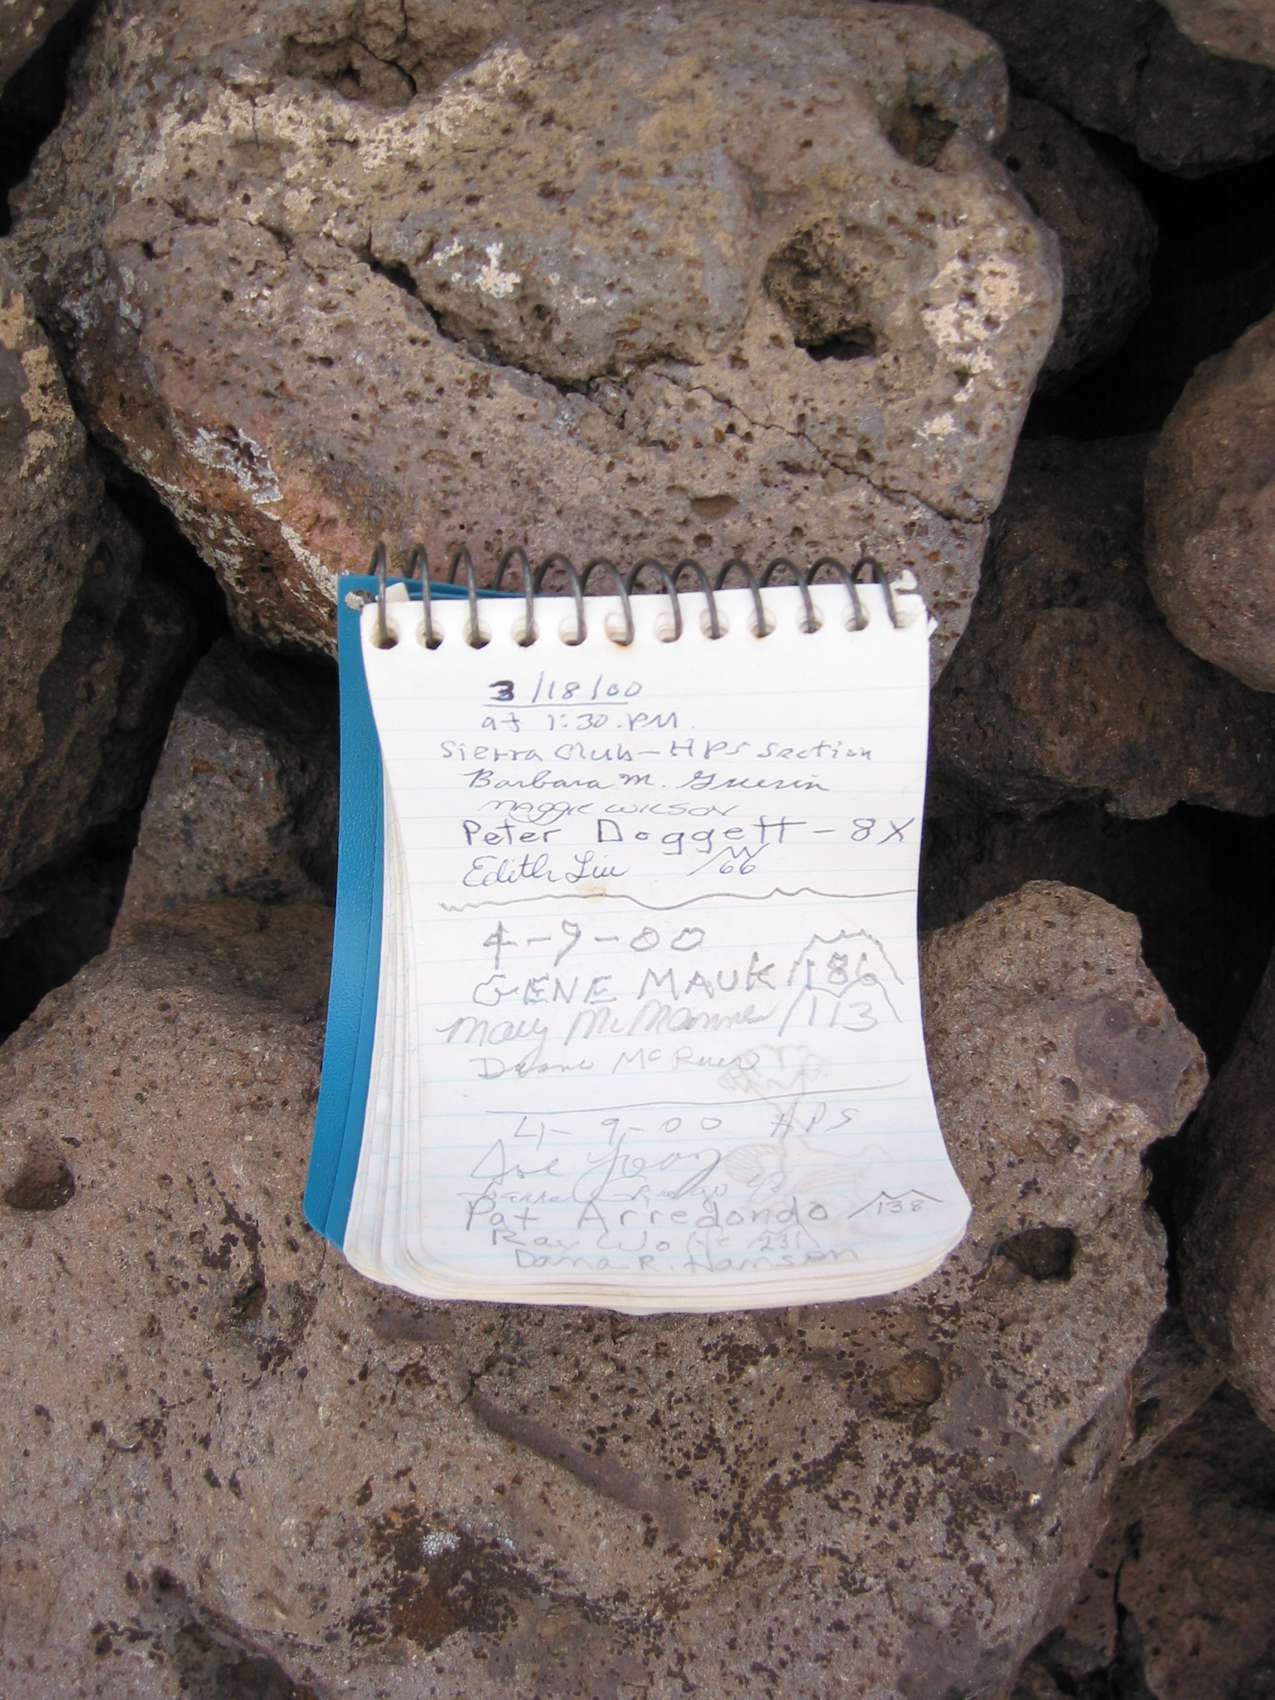 3/18/00
at 1:30 PM.
Sierra Club - HPS Section
Barbara M. Guerin
Maggie Wilson
Peter Doggett - 8X
Edith Liu /66
4-9-00
GENE MAUK /186
Mary McMannes /113
4-9-00 HPS
Joe Young
Pat Arredondo /138
Ray Wolfe 231
Dana R. Hansen